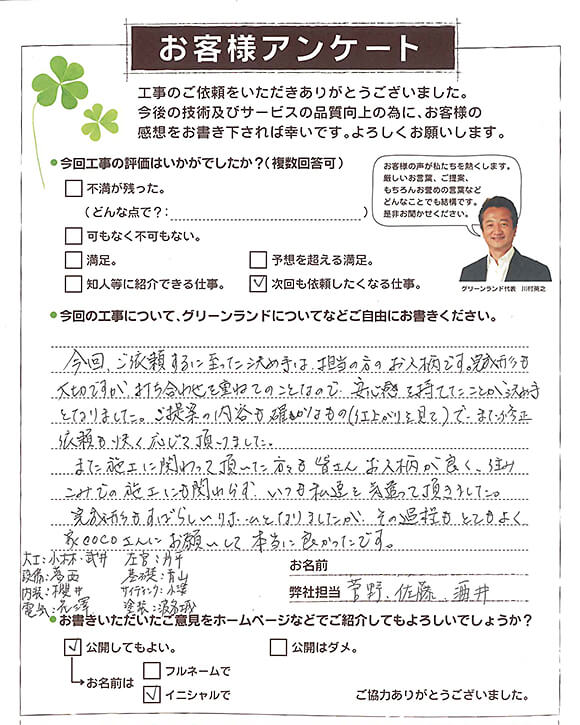 お客様アンケート
工事のご依頼をいただきありがとうございました。
今後の技術及びサービスの品質向上の為に、お客様の
感想をお書き下されば幸いです。よろしくお願いします。
●今回工事の評価はいかがでしたか?(複数回答可)
不満が残った。
(どんな点で?: )
可もなく不可もない。
満足。
予想を超える満足。
知人等に紹介できる仕事。
次回も依頼したくなる仕事。
お客様の声が私たちを熱くします。
厳しいお言葉、ご提案、
もちろんお誉めの言葉など
どんなことでも結構です。
是非お聞かせください。
グリーンランド代表 川村英之
●今回の工事について、グリーンランドについてなどご自由にお書きください。
今回、ご依頼するに至った決め手は、担当の方のお人柄です。完成形も
大切ですが、打ち合わせを重ねてのことなので、安心感を持てたことが決め手
となりました。ご提案の内容も確かなもの(仕上がりを見て)で、また修正
依頼も快く応じて頂けました。
また施工に関わって頂いた方々も皆さんお人柄が良く、住み
こみでの施工にも関わらず、いつも私達を気遣って頂きました。
完成形もすばらしいリホームとなりましたが、その過程もとてもよく
家COCOさんにお願いして本当に良かったです。
大工:小林・武井 左官:丹平
設備:葛西 基礎:青山
内装:櫻井 サイディング:小澤
電気: 塗装:
お名前
弊社担当 菅野、佐藤、酒井
●お書きいただいたご意見をホームページなどでご紹介してもよろしいでしょうか?
公開してもよい。
公開はダメ。
お名前は
フルネームで
イニシャルで
ご協力ありがとうございました。